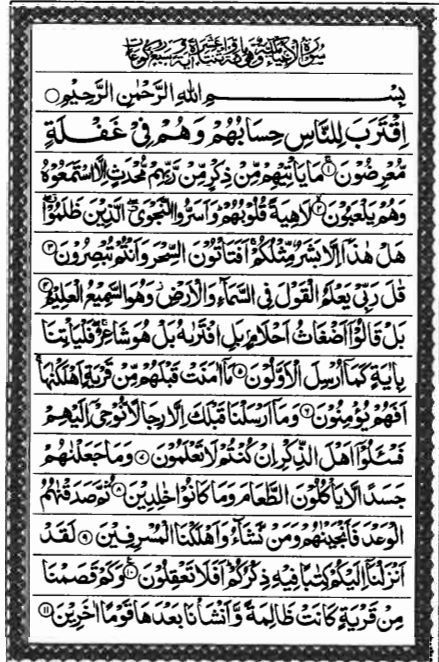 سورة الأنبياء مكية وهي مائة واثنتا عشرة آية وسبع ركوعات
بِسْمِ اللهِ الرَّحْمٰنِ الرَّحِيْمِ ○
اِقْتَرَبَ لِلنَّاسِ حِسَابُهُمْ وَهُمْ فِيْ غَفْلَةٍ
مُّعْرِضُوْنَ ۚ‏ ۱ مَا يَاْتِيْهِمْ مِّنْ ذِكْرٍ مِّنْ رَّبِّهِمْ مُّحْدَثٍ اِلَّا اسْتَمَعُوْهُ
وَهُمْ يَلْعَبُوْنَ ۙ ۲ لَاهِيَةً قُلُوْبُهُمْ ؕ وَاَسَرُّوا النَّجْوَى ۖ الَّذِيْنَ ظَلَمُوْا ۖ
هَلْ هٰذَاۤ اِلَّا بَشَرٌ مِّثْلُكُمْ ۚ اَفَتَاْتُوْنَ السِّحْرَ وَاَنْتُمْ تُبْصِرُوْنَ ۳
قٰلَ رَبِّيْ يَعْلَمُ الْقَوْلَ فِي السَّمَآءِ وَالْاَرْضِ ۫ وَهُوَ السَّمِيْعُ الْعَلِيْمُ ۴
بَلْ قَالُوْۤا اَضْغَاثُ اَحْلَامٍۭ بَلِ افْتَرٰىهُ بَلْ هُوَ شَاعِرٌ ۖ فَلْيَاْتِنَا
بِاٰيَةٍ كَمَاۤ اُرْسِلَ الْاَوَّلُوْنَ ۵ مَاۤ اٰمَنَتْ قَبْلَهُمْ مِّنْ قَرْيَةٍ اَهْلَكْنٰهَا ۚ
اَفَهُمْ يُؤْمِنُوْنَ ۶ وَمَاۤ اَرْسَلْنَا قَبْلَكَ اِلَّا رِجَالًا نُّوْحِيْۤ اِلَيْهِمْ
فَسْـَٔلُوْۤا اَهْلَ الذِّكْرِ اِنْ كُنْتُمْ لَا تَعْلَمُوْنَ ۷ وَمَا جَعَلْنٰهُمْ
جَسَدًا لَّا يَاْكُلُوْنَ الطَّعَامَ وَمَا كَانُوْا خٰلِدِيْنَ ۸ ثُمَّ صَدَقْنٰهُمُ
الْوَعْدَ فَاَنْجَيْنٰهُمْ وَمَنْ نَّشَآءُ وَاَهْلَكْنَا الْمُسْرِفِيْنَ ۹ لَقَدْ
اَنْزَلْنَاۤ اِلَيْكُمْ كِتٰبًا فِيْهِ ذِكْرُكُمْ ؕ اَفَلَا تَعْقِلُوْنَ ۱۰ وَكَمْ قَصَمْنَا
مِنْ قَرْيَةٍ كَانَتْ ظَالِمَةً وَّاَنْشَاْنَا بَعْدَهَا قَوْمًا اٰخَرِيْنَ ۱۱